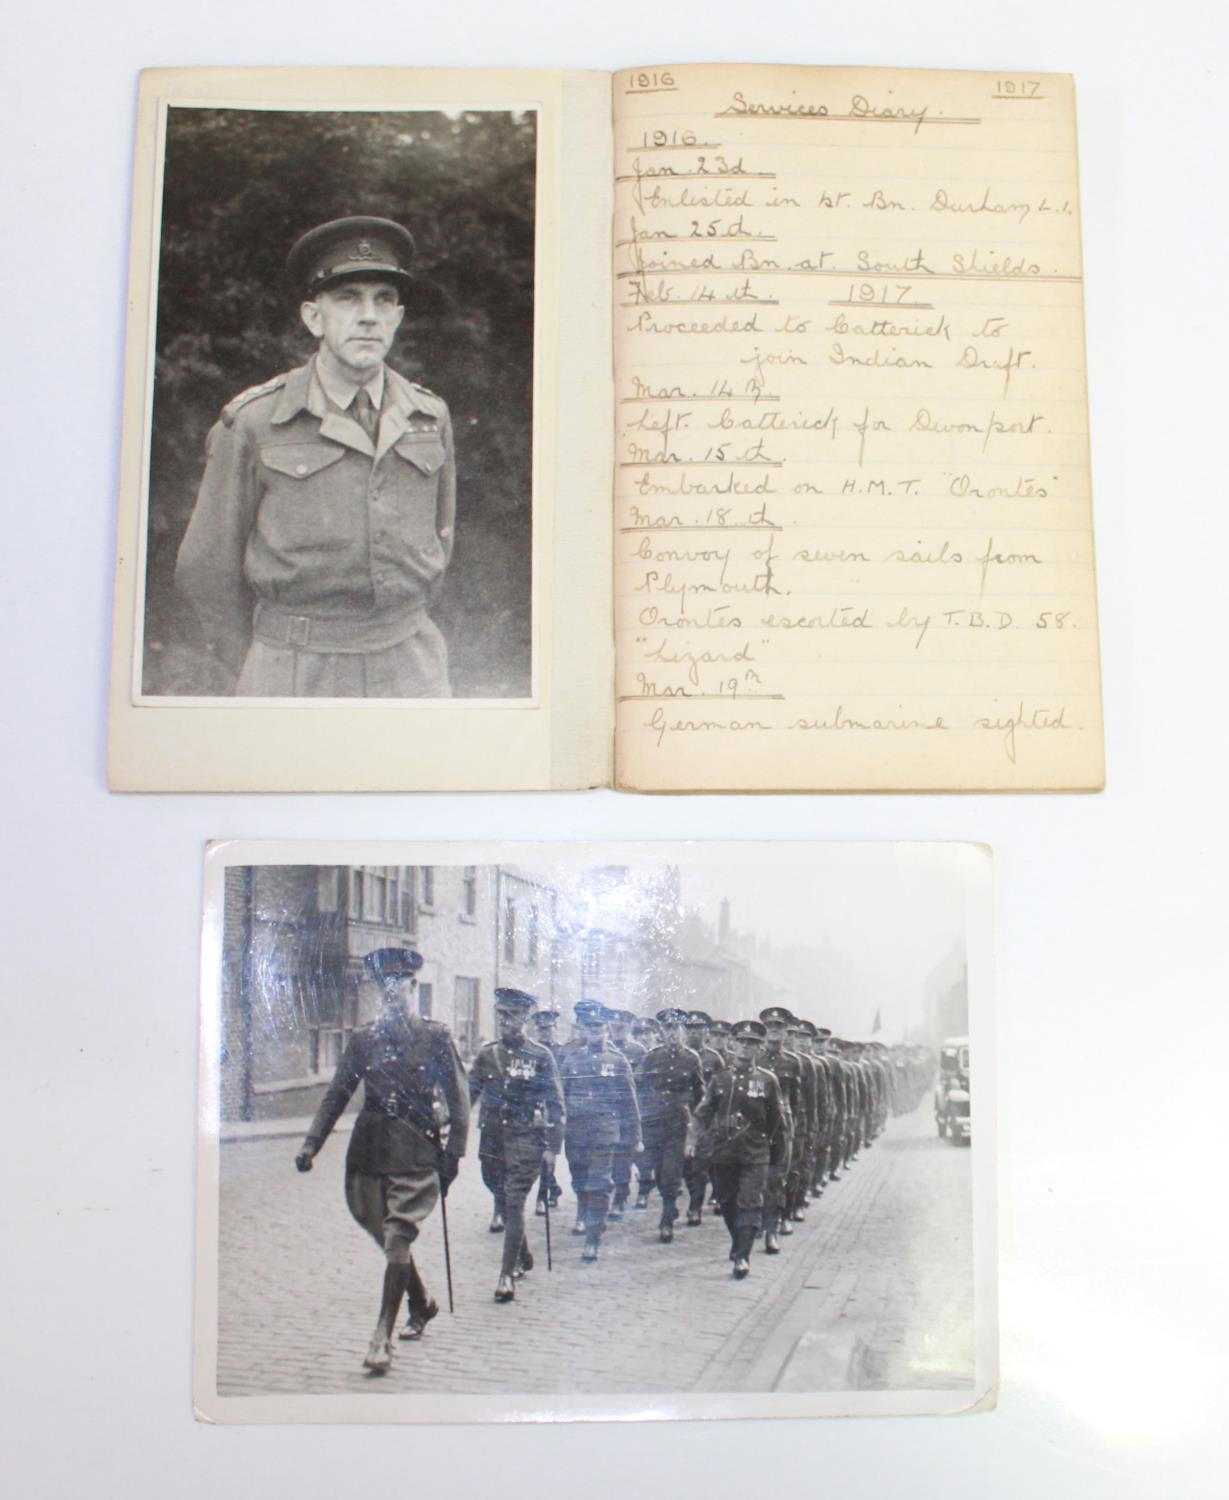 1916 1917
Services Diary.
1916.
Jan. 23d.
Enlisted in 1st. Bn. Durham L.I.
Jan 25th.
Joined Bn. at South Shields.
Feb. 14th. 1917.
Proceeded to Catterick to
join Indian Draft.
Mar. 14th.
Left Catterick for Devonport.
Mar. 15th.
Embarked on H.M.T. "Orontes"
Mar. 18th.
Convoy of seven sails from
Plymouth.
Orontes escorted by T.B.D. 58.
"Lizard"
Mar. 19th
German submarine sighted.